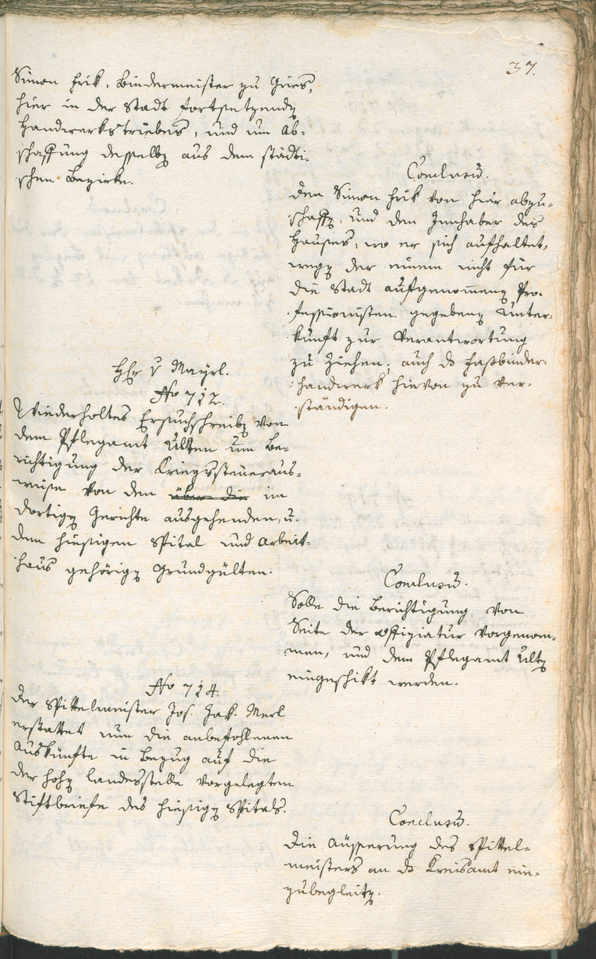 37.
Simon Erik, Bindermeister zu Gries,
hier in der Stadt fortsetzende
Handwerkstriebes, und um Ab-
schaffung desselbe aus dem städti-
schen Bezirke.
Conclusu.
Den Simon Erik von hier abzu-
schaffe, und den Innhaber des
Hauses, wo er sich aufhaltet,
wege der einem nicht für
die Stadt aufgenommene Pro-
fessionisten gegebene Unter-
kunft zur Verantwortung
zu ziehen, auch ds Faßbinder-
handwerk hievon zu ver-
ständigen.
Hr v Mayrl.
No 712.
Wiederholtes Ersuchschreibe von
dem Pflegamt Ulten um Be-
richtigung der Kriegssteueraus-
weise von den über die im
dortige Gerichte ausgehenden, u.
dem hiesigen Spital und Arbeit-
haus gehörige Grundgülten.
Conclusu.
Solle die Berichtigung von
Seite der Offiziatur vorgenom-
men, und dem Pflegamt Ulte
eingeschikt werden.
No 714.
Der Spittelmeister Jos. Jak. Merl
erstattet nun die anbefohlenen
Auskünfte in Bezug auf die
der hohe Landesstelle vorgelegten
Stiftbriefe des hiesige Spitals.
Conclusu.
Die Äusserung des Spittel-
meisters an ds Kreisamt ein-
zubegleite.